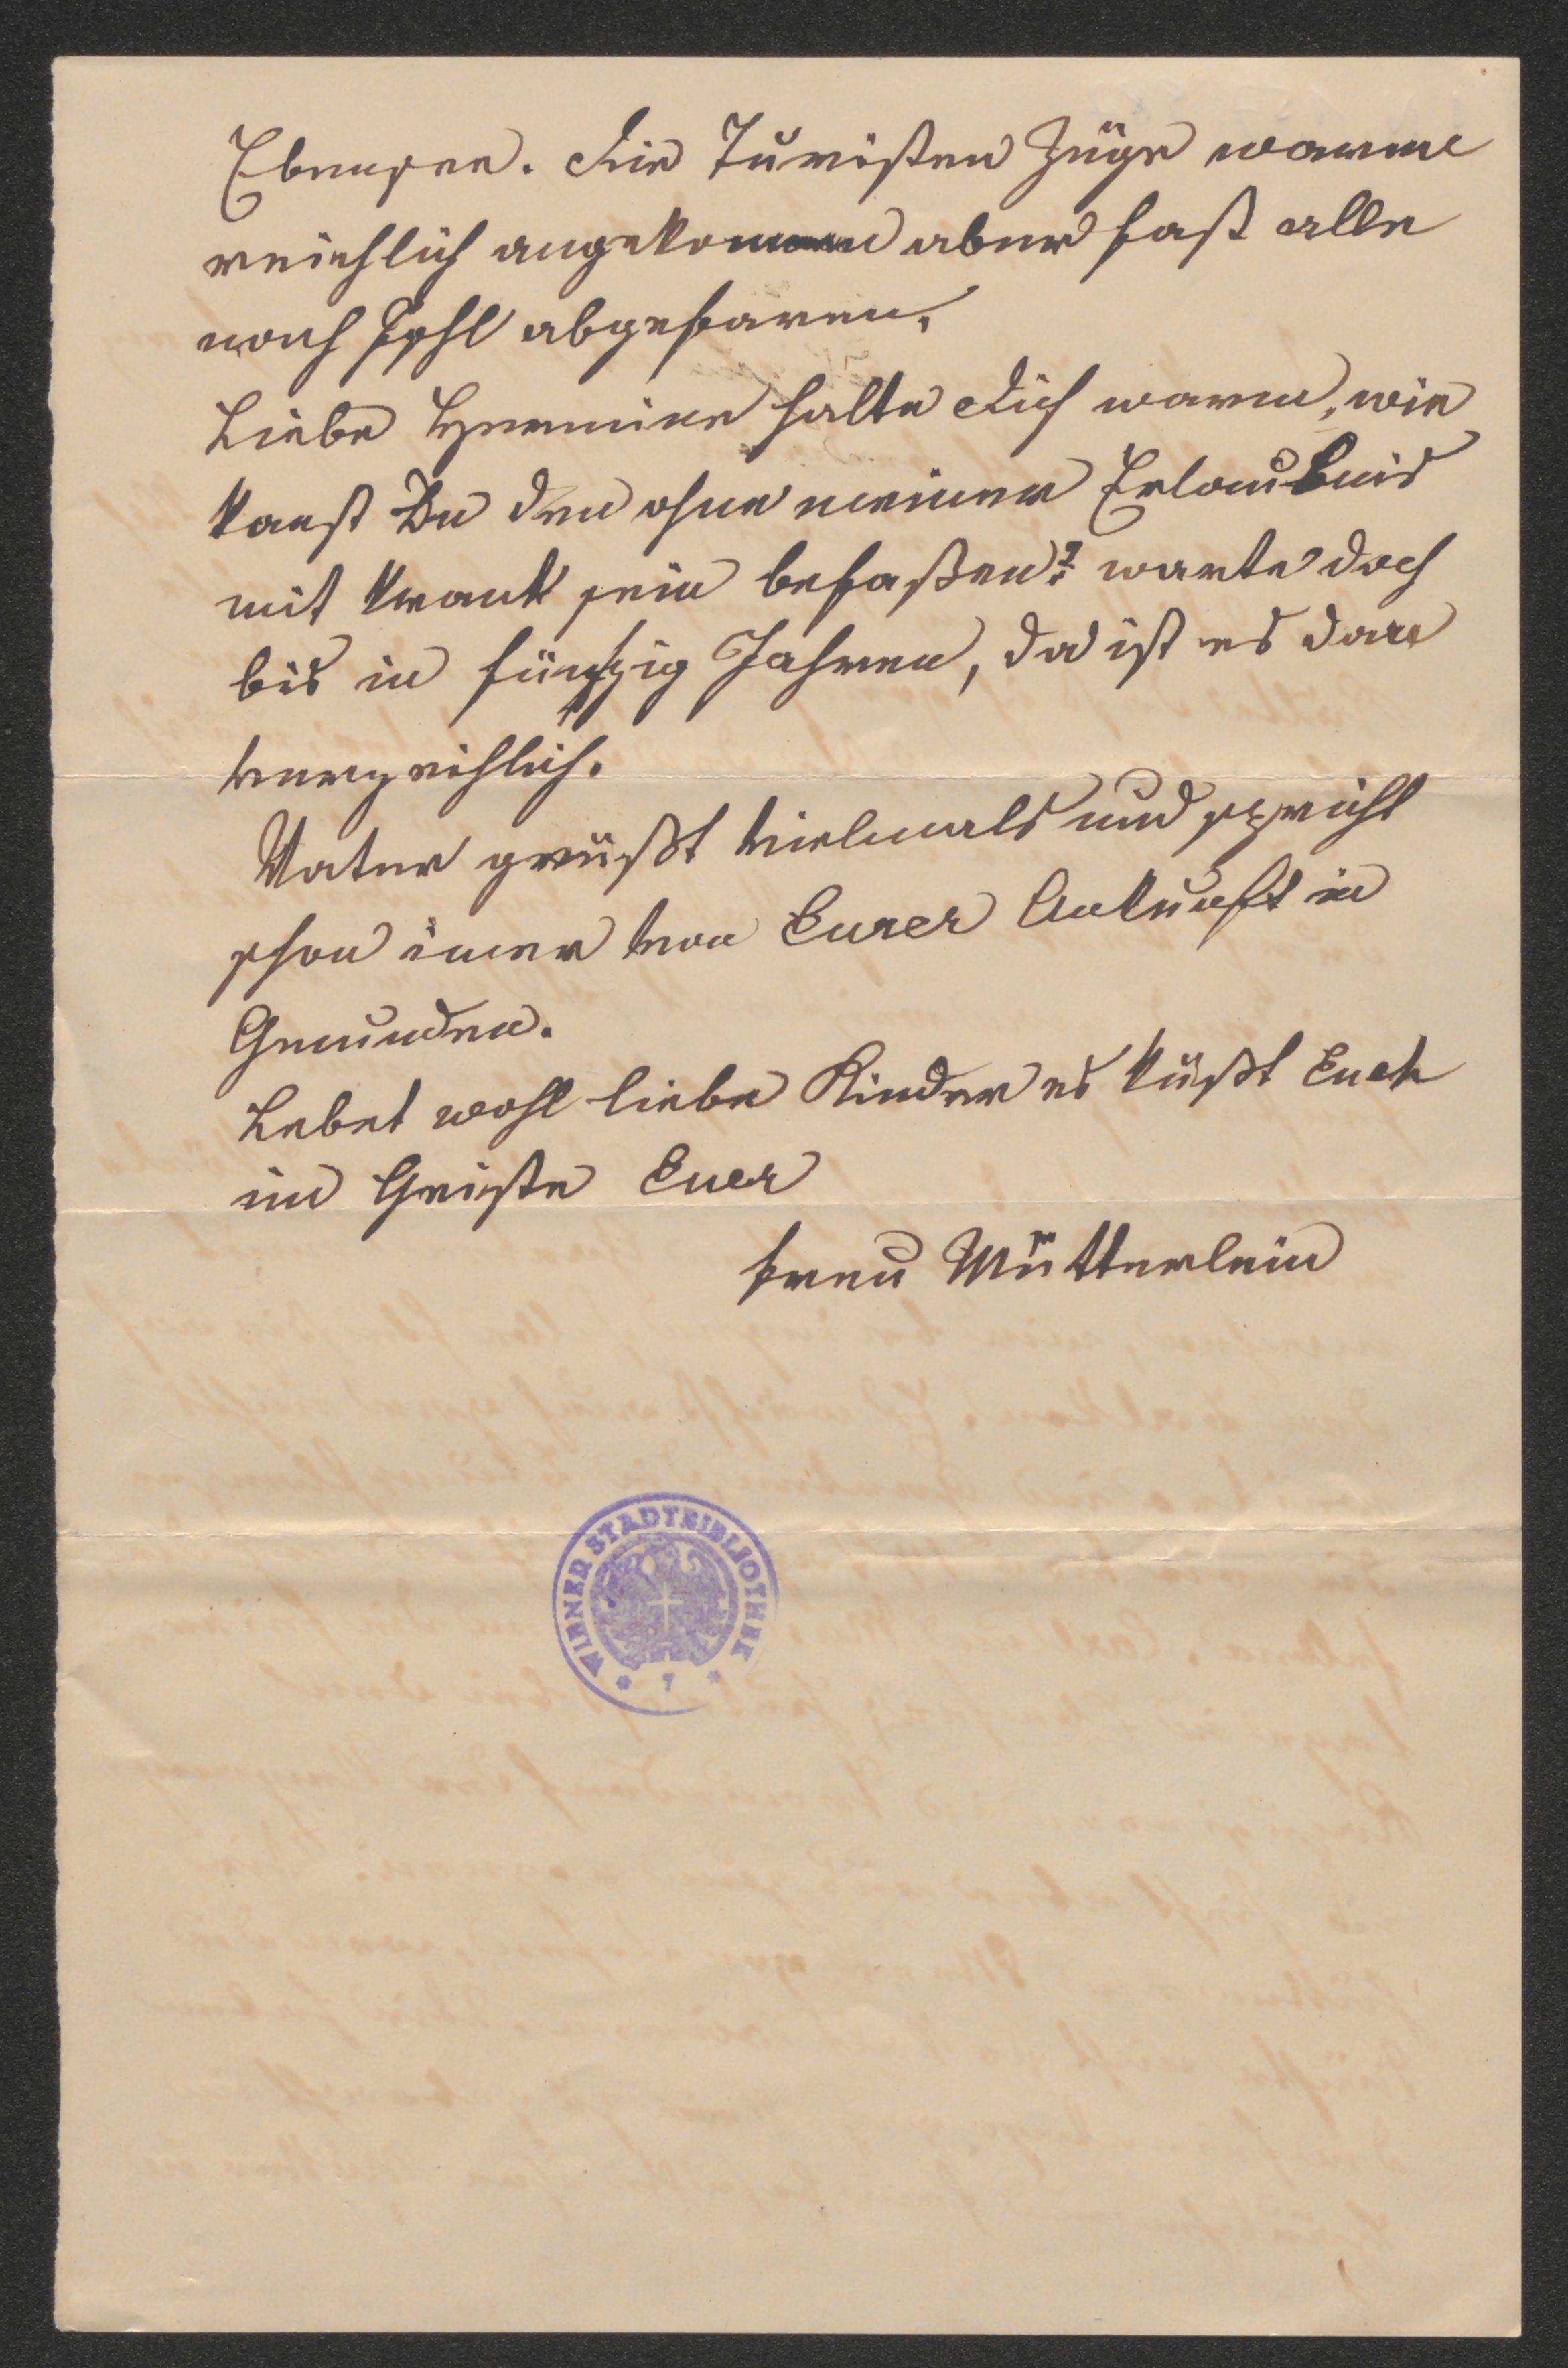 Ebensee. Die Turisten Züge waren
reichlich angekommen aber fast alle
nach Ischl abgefaren.
Liebe Hermine halte Dich warm, wie
kanst Du den ohne meiner Erlaubnis
mit krank sein befaßen? warte doch
bis in fünfzig Jahren, da ist es dan
verzeihlich.
Vater grüßt vielmals und spricht
schon imer von Eurer Ankunft in
Gmunden.
Lebet wohl liebe Kinder es küßt Euch
im Geiste Euer
treu Mütterlein
WIENER STADTBIBLIOTHEK
* 7 *